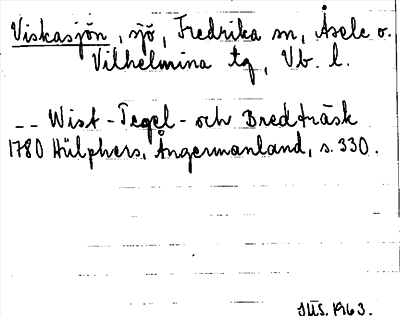 Viskasjön, sjö, Fredrika sn, Åsele o.
Vilhelmina tg, Vb. l.
-- Wist-Tegel- och Bredträsk
1780 Hülphers, Ångermanland, s. 330.
JUS. 1963.